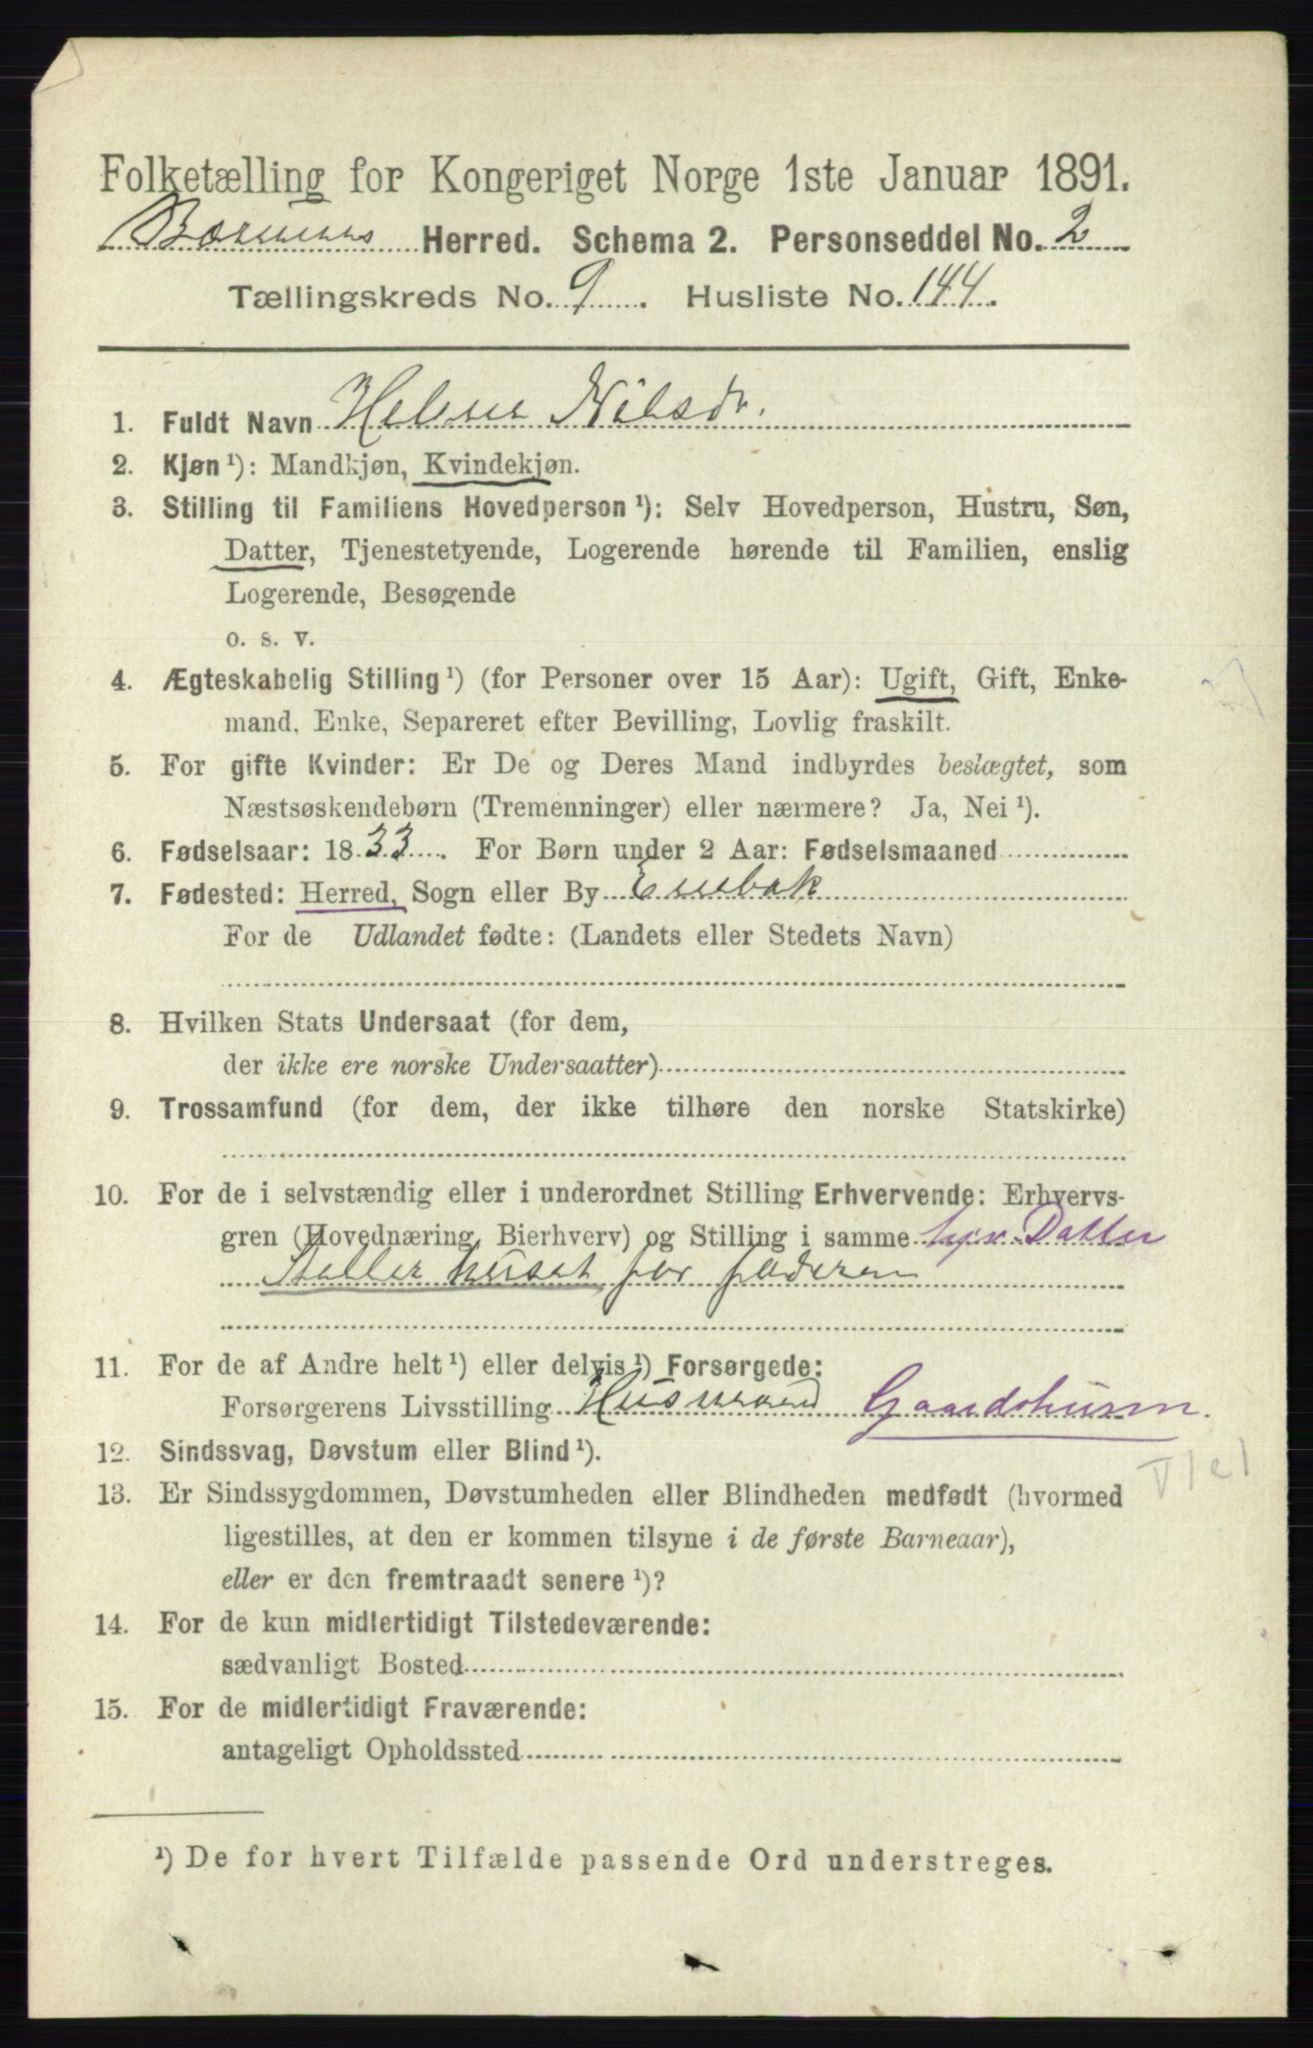 Folketælling for Kongeriget Norge 1ste Januar 1891.
Bærums Herred. Schema 2. Personseddel No. 2
Tællingskreds No. 9. Husliste No. 144.
1. Fuldt Navn Helene Nilsdr.
2. Kjøn ¹): Mandkjøn, Kvindekjøn.
3. Stilling til Familiens Hovedperson ¹): Selv Hovedperson, Hustru, Søn,
Datter, Tjenestetyende, Logerende hørende til Familien, enslig
Logerende, Besøgende
o. s. v.
4. Ægteskabelig Stilling ¹) (for Personer over 15 Aar): Ugift, Gift, Enke-
mand, Enke, Separeret efter Bevilling, Lovlig fraskilt.
5. For gifte Kvinder: Er De og Deres Mand indbyrdes beslægtet, som
Næstsøskendebørn (Tremenninger) eller nærmere? Ja, Nei ¹).
6. Fødselsaar: 1833. For Børn under 2 Aar: Fødselsmaaned
7. Fødested: Herred, Sogn eller By Enebak
For de Udlandet fødte: (Landets eller Stedets Navn)
8. Hvilken Stats Undersaat (for dem,
der ikke ere norske Undersaatter)
9. Trossamfund (for dem, der ikke tilhøre den norske Statskirke)
10. For de i selvstændig eller i underordnet Stilling Erhvervende: Erhvervs-
gren (Hovednæring, Bierhverv) og Stilling i samme Datter
Steller huset for faderen
11. For de af Andre helt ¹) eller delvis ¹) Forsørgede:
Forsørgerens Livsstilling Husmand Gaardshusm.
12. Sindssvag, Døvstum eller Blind ¹).
13. Er Sindssygdommen, Døvstumheden eller Blindheden medfødt (hvormed
ligestilles, at den er kommen tilsyne i de første Barneaar),
eller er den fremtraadt senere ¹)?
14. For de kun midlertidigt Tilstedeværende:
sædvanligt Bosted
15. For de midlertidigt Fraværende:
antageligt Opholdssted
¹) De for hvert Tilfælde passende Ord understreges.